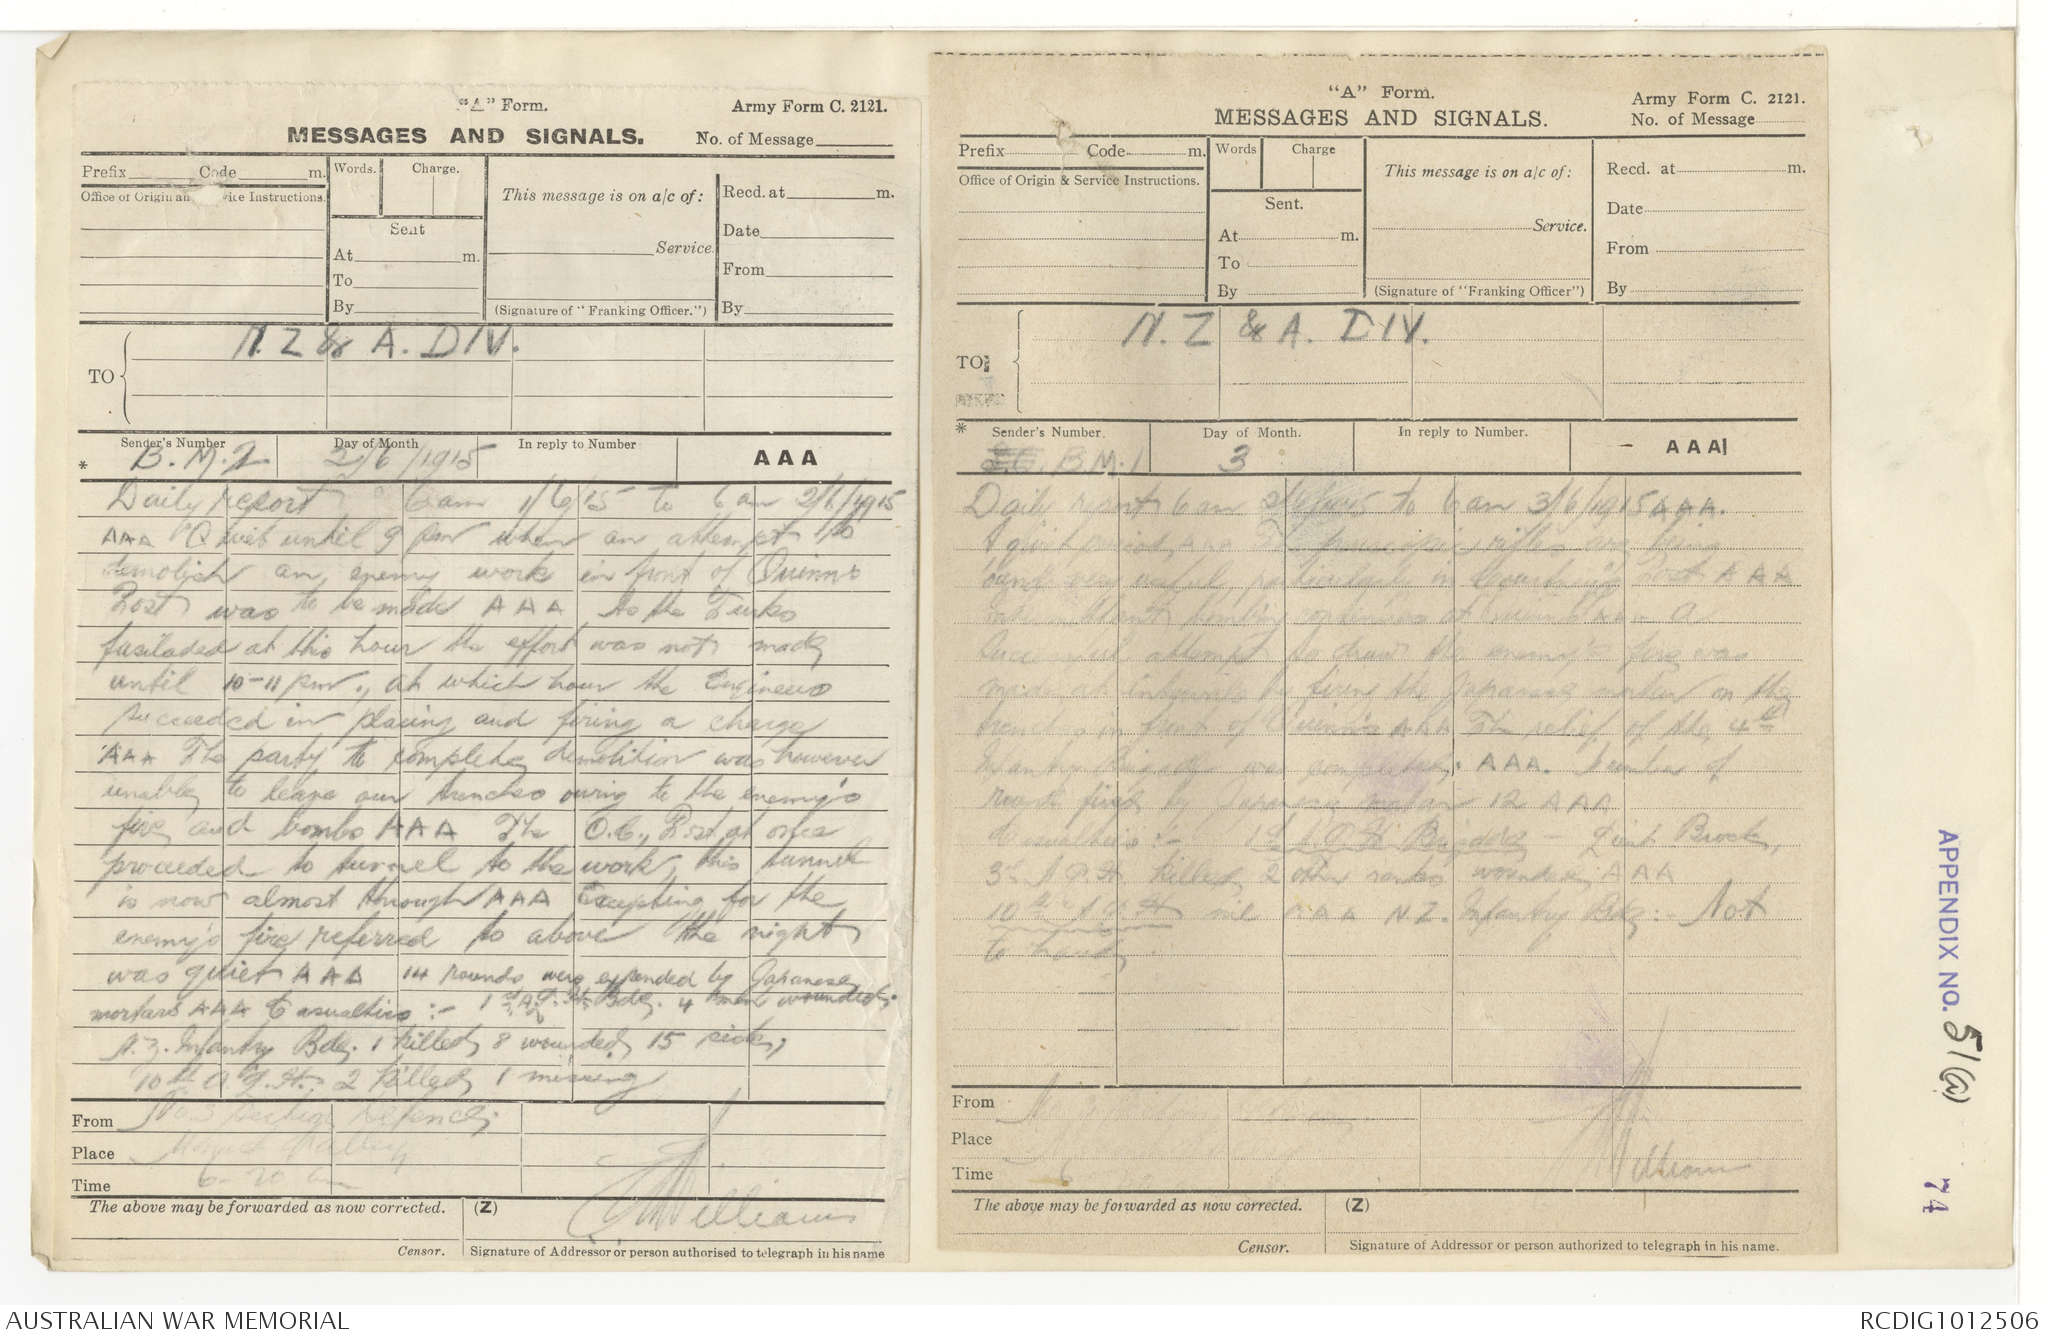 "A" Form. Army Form C. 2121.
MESSAGES AND SIGNALS. No. of Message
Prefix Code m.
Words. Charge.
This message is on a/c of:
Recd. at m.
Office of Origin an vice Instructions.
Sent
Date
Service.
At m.
From
To
By
(Signature of "Franking Officer.")
By
TO
N.Z & A. DIV.
Sender's Number Day of Month In reply to Number
* B.M.2 2/6/1915 AAA
Daily report 6 am 1/6/15 to 6 am 2/6/1915
AAA Quiet until 9 pm when an attempt to
demolish an enemy work in front of Quinns
Post was to be made AAA As the Turks
fusiladed at this hour the effort was not made
until 10-11 pm., at which hour the Engineers
succeeded in placing and firing a charge
AAA The party to complete demolition was however
unable to leave our trenches owing to the enemy's
fire and bombs AAA The O.C., Post, at once
proceeded to tunnel to the work, this tunnel
is now almost through AAA Excepting for the
enemy's fire referred to above the night
was quiet AAA 14 rounds were expended by Japanese
mortars AAA Casualties :- 1st A.L.H. Bde. 4 men wounded;
N.Z. Infantry Bde. 1 killed, 8 wounded, 15 sick;
10th A.L.H. 2 killed, 1 missing
From No 3 Section Defence,
Place Monash Valley
Time 6-20 am
Williams
The above may be forwarded as now corrected. (Z)
Censor. Signature of Addressor or person authorised to telegraph in his name
"A" Form. Army Form C. 2121.
MESSAGES AND SIGNALS. No. of Message
Prefix Code m.
Words Charge
This message is on a/c of:
Recd. at m.
Office of Origin & Service Instructions.
Sent.
Date
Service.
At m.
From
To
By
(Signature of "Franking Officer")
By
TO
N.Z & A. DIV.
* Sender's Number. Day of Month. In reply to Number.
B M.1 3 AAA
Daily report 6 am 2/6/1915 to 6 am 3/6/1915 AAA.
A quiet period AAA The periscopic rifles are being
found very useful, particularly in Courtney's Post AAA
bombing at Quinns AAA A
successful attempt to draw the enemy's fire was
made at intervals by firing the Japanese mortar on the
trenches in front of Quinn's AAA The relief of the 4th
Infantry Brigade was completed. AAA. Number of
rounds fired by Japanese mortar 12 AAA
Casualties :- 1st A.L.H. Brigade - Lieut Brock,
3rd A.L.H. killed, 2 other ranks wounded, AAA
10th A.L.H. nil AAA N.Z. Infantry Bde:- Not
to hand.
From
Place
Time 6
Williams
The above may be forwarded as now corrected. (Z)
Censor. Signature of Addressor or person authorized to telegraph in his name.
APPENDIX NO. 51(a)
74
AUSTRALIAN WAR MEMORIAL RCDIG1012506